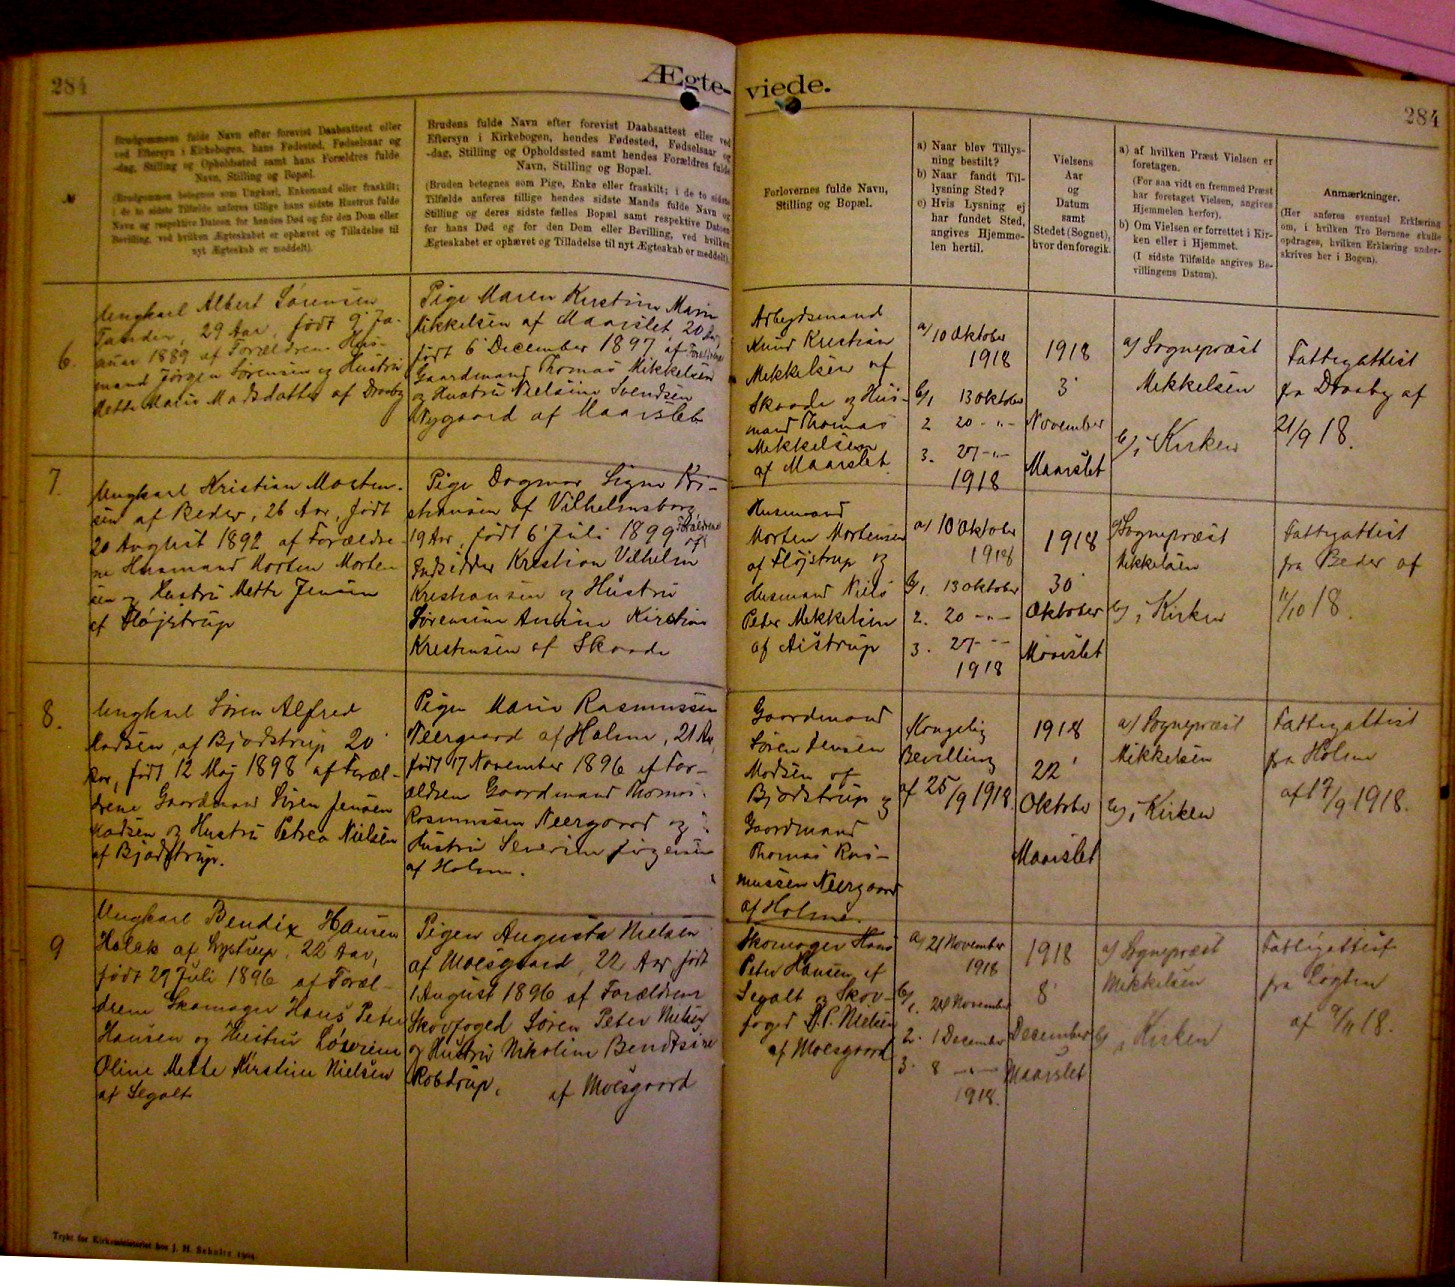 284
Ægte-
viede.
284
Brudgommens fulde Navn efter forevist Daabsattest eller
ved Eftersyn i Kirkebogen, hans Fødested, Fødselsaar og
-dag, Stilling og Opholdssted samt hans Forældres fulde
Navn, Stilling og Bopæl.
(Brudgommen betegnes som Ungkarl, Enkemand eller fraskilt;
i de to sidste Tilfælde anføres tillige hans sidste Hustrus fulde
Navn og respektive Datoen for hendes Død og for den Dom eller
Bevilling, ved hvilken Ægteskabet er ophævet og Tilladelse til
nyt Ægteskab er meddelt).
Brudens fulde Navn efter forevist Daabsattest eller ved
Eftersyn i Kirkebogen, hendes Fødested, Fødselsaar og
-dag, Stilling og Opholdssted samt hendes Forældres fulde
Navn, Stilling og Bopæl.
(Bruden betegnes som Pige, Enke eller fraskilt; i de to sidste
Tilfælde anføres tillige hendes sidste Mands fulde Navn og
Stilling og deres sidste fælles Bopæl samt respektive Datoen
for hans Død og for den Dom eller Bevilling, ved hvilken
Ægteskabet er ophævet og Tilladelse til nyt Ægteskab er meddelt).
Forlovernes fulde Navn,
Stilling og Bopæl.
a) Naar blev Tillys-
ning bestilt?
b) Naar fandt Til-
lysning Sted?
c) Hvis Lysning ej
har fundet Sted,
angives Hjemme-
len hertil.
Vielsens
Aar
og
Datum
samt
Stedet (Sognet),
hvor den foregik.
a) af hvilken Præst Vielsen er
foretagen.
(For saa vidt en fremmed Præst
har foretaget Vielsen, angives
Hjemmelen herfor).
b) Om Vielsen er forrettet i Kir-
ken eller i Hjemmet.
(I sidste Tilfælde angives Be-
villingens Datum).
Anmærkninger.
(Her anføres eventuel Erklæring
om, i hvilken Tro Børnene skulle
opdrages, hvilken Erklæring under-
skrives her i Bogen).
6.
Ungkarl Albert Sørensen
29 Aar, født 9' Ja-
nuar 1889 af Forældrene Hus-
mand Jørgen Sørensen og Hustru
Mette Marie Madsdatter af Draaby
Pige Maren Kirstine Marie
Mikkelsen af Maarslet 20 Aar,
født 6' December 1897 af Forældrene
Gaardmand Thomas Mikkelsen
og Hustru Nielsine Svendsen
Nygaard af Maarslet
Arbejdsmand
Knud Kristian
Mikkelsen af
Skaade og Hus-
mand Thomas
Mikkelsen
af Maarslet
a/ 10 Oktober
1918
b/ 1 13 Oktober
2 20 - " -
3. 27 - " -
1918
1918
3'
November
Maarslet
a/ Sognepræst
Mikkelsen
b/ i Kirken
Fattigattest
fra Draaby af
21/9 18.
7.
Ungkarl Kristian Morten-
sen af Beder, 26 Aar, født
20 Avgust 1892 af Forældre-
ne Husmand Morten Morten-
sen og Hustru Mette Jensen
af Fløjstrup
Pige Dagmar Signe Kri-
stiansen af Vilhelmsborg
19 Aar, født 6' Juli 1899 af Forældrene
Indsidder Kristian Vilhelm
Kristiansen og Hustru
Sørensine Ansine Kirstine
Kristensen af Skaade
Husmand
Morten Mortensen
af Fløjstrup og
Husmand Niels
Peter Mikkelsen
af Aistrup
a/ 10 Oktober
1918
b/ 1. 13 Oktober
2. 20 - " -
3. 27 - " -
1918
1918
30'
Oktober
Maarslet
a/ Sognepræst
Mikkelsen
b/ i Kirken
Fattigattest
fra Beder af
11/10 18.
8.
Ungkarl Søren Alfred
Madsen af Bjødstrup 20
Aar, født 12 Maj 1898 af Foræl-
drene Gaardmand Søren Jensen
Madsen og Hustru Petrea Nielsen
af Bjødstrup.
Pige Marie Rasmussen
Neergaard af Holme, 21 Aar,
født 17 November 1896 af For-
ældrene Gaardmand Thomas
Rasmussen Neergaard og
Hustru Severine Jørgensen
af Holme.
Gaardmand
Søren Jensen
Madsen af
Bjødstrup og
Gaardmand
Thomas Ras-
mussen Neergaard
af Holme.
Kongelig
Bevilling
af 25/9 1918.
1918
22'
Oktober
Maarslet
a/ Sognepræst
Mikkelsen
b/ i Kirken
Fattigattest
fra Holme
af 19/9 1918.
9
Ungkarl Bendix Hansen
Holck af Lystrup, 22 Aar,
født 29 Juli 1896 af Foræl-
drene Skomager Hans Peter
Hansen og Hustru
Oline Mette Kirstine Nielsen
af Segalt
Pigen Augusta Nielsen
af Moesgaard, 22 Aar født
1 August 1896 af Forældrene
Skovfoged Søren Peter Nielsen
og Hustru Nikoline Bendtsine
Robdrup, af Moesgaard
Skomager Hans
Peter Hansen af
Segalt og Skov-
foged S. P. Nielsen
af Moesgaard
a/ 21 November
1918
b/ 1. 24 November
2. 1 December
3. 8 - " -
1918.
1918
8'
December
Maarslet
a/ Sognepræst
Mikkelsen
b/ i Kirken
Fattigattest
fra Løgten
af 9/11 18.
Trykt for Kirkeministeriet hos J. H. Schultz 1904.